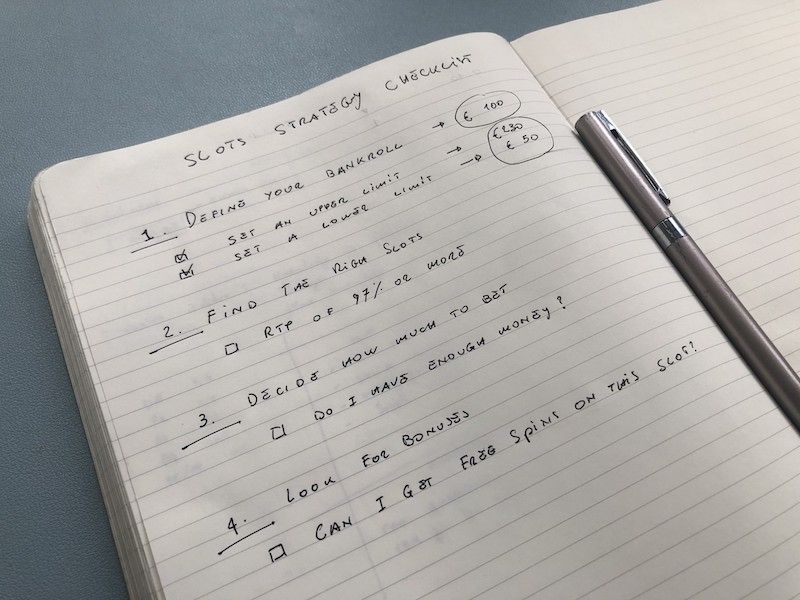 SLOTS STRATEGY CHECKLIST
1. DEFINE YOUR BANKROLL → € 100
☑ SET AN UPPER LIMIT → € 230
☑ SET A LOWER LIMIT → € 50
2. FIND THE RIGH SLOTS
☐ RTP OF 97% OR MORE
3. DECIDE HOW MUCH TO BET
☐ DO I HAVE ENOUGH MONEY?
4. LOOK FOR BONUSES
☐ CAN I GET FREE SPINS ON THIS SLOT?